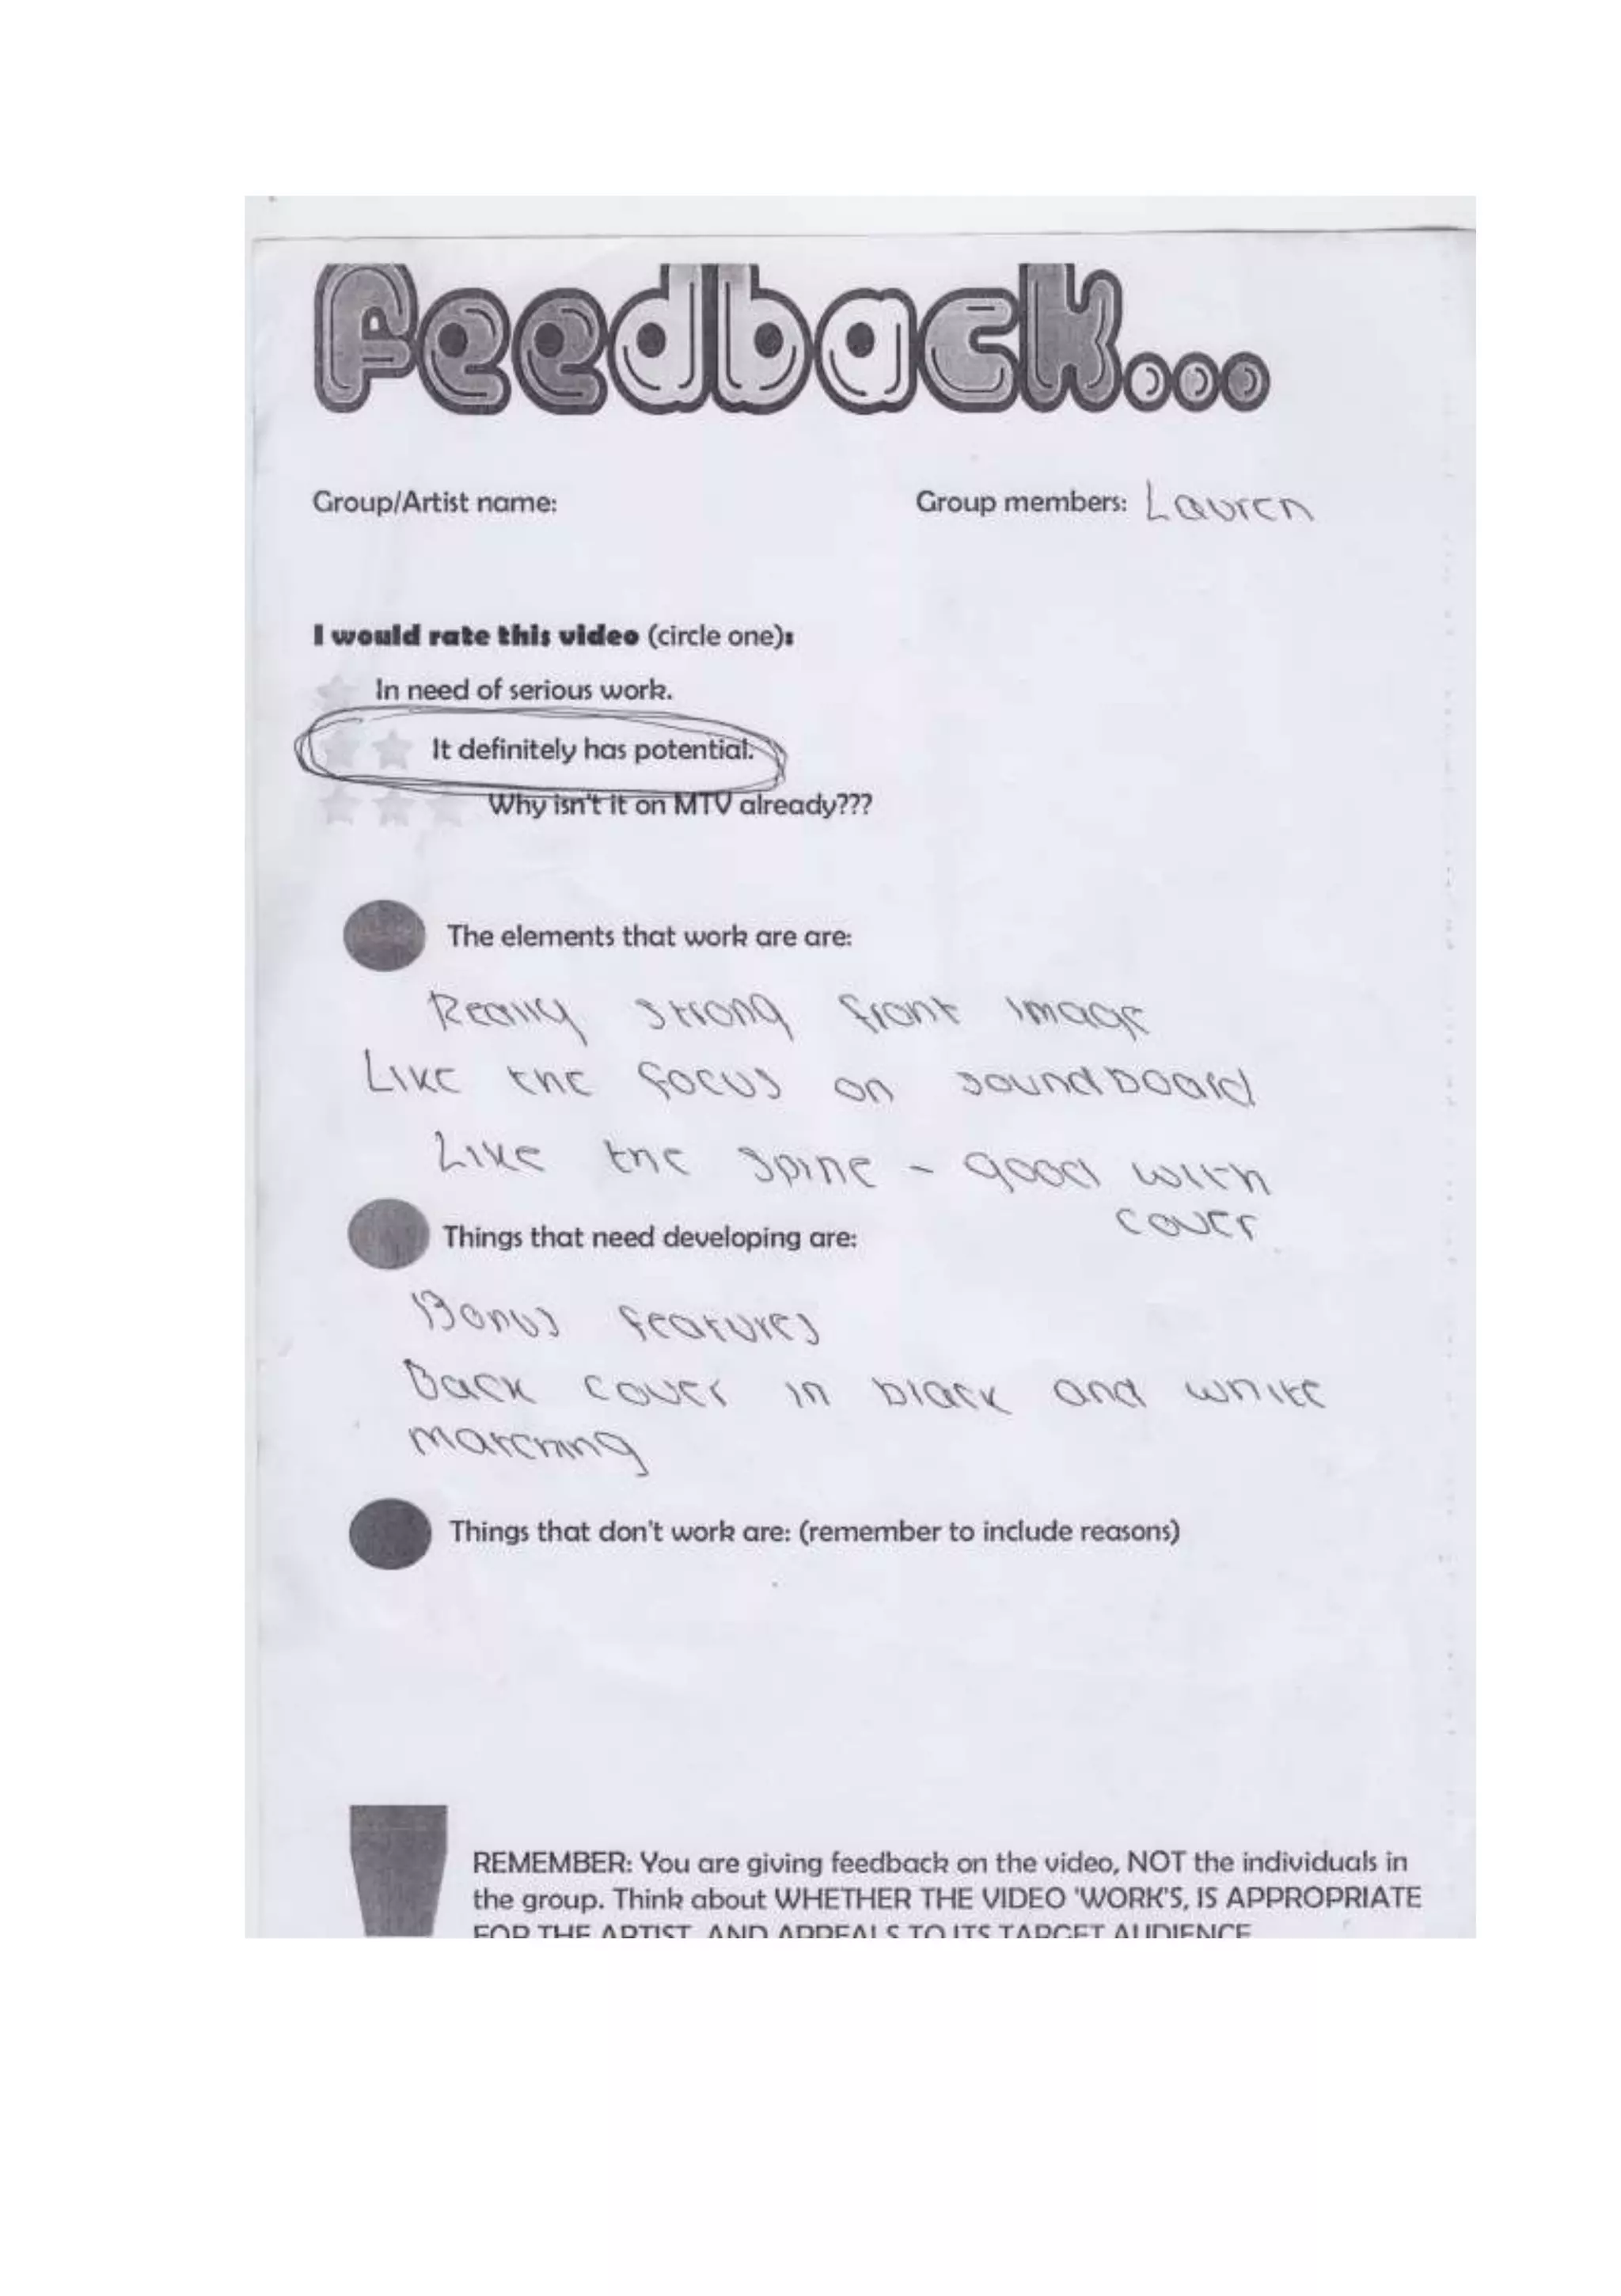 Feedback...
Group/Artist name:
Group members: Lauren
I would rate this video (circle one):
In need of serious work.
It definitely has potential.
Why isn't it on MTV already???
The elements that work are are:
Really strong front image
Like the focus on soundboard
Like the spine - good with
cover
Things that need developing are:
Bonus features
Back cover in black and white
matching
Things that don't work are: (remember to include reasons)
REMEMBER: You are giving feedback on the video, NOT the individuals in
the group. Think about WHETHER THE VIDEO 'WORK'S, IS APPROPRIATE
FOR THE ARTIST, AND APPEALS TO ITS TARGET AUDIENCE